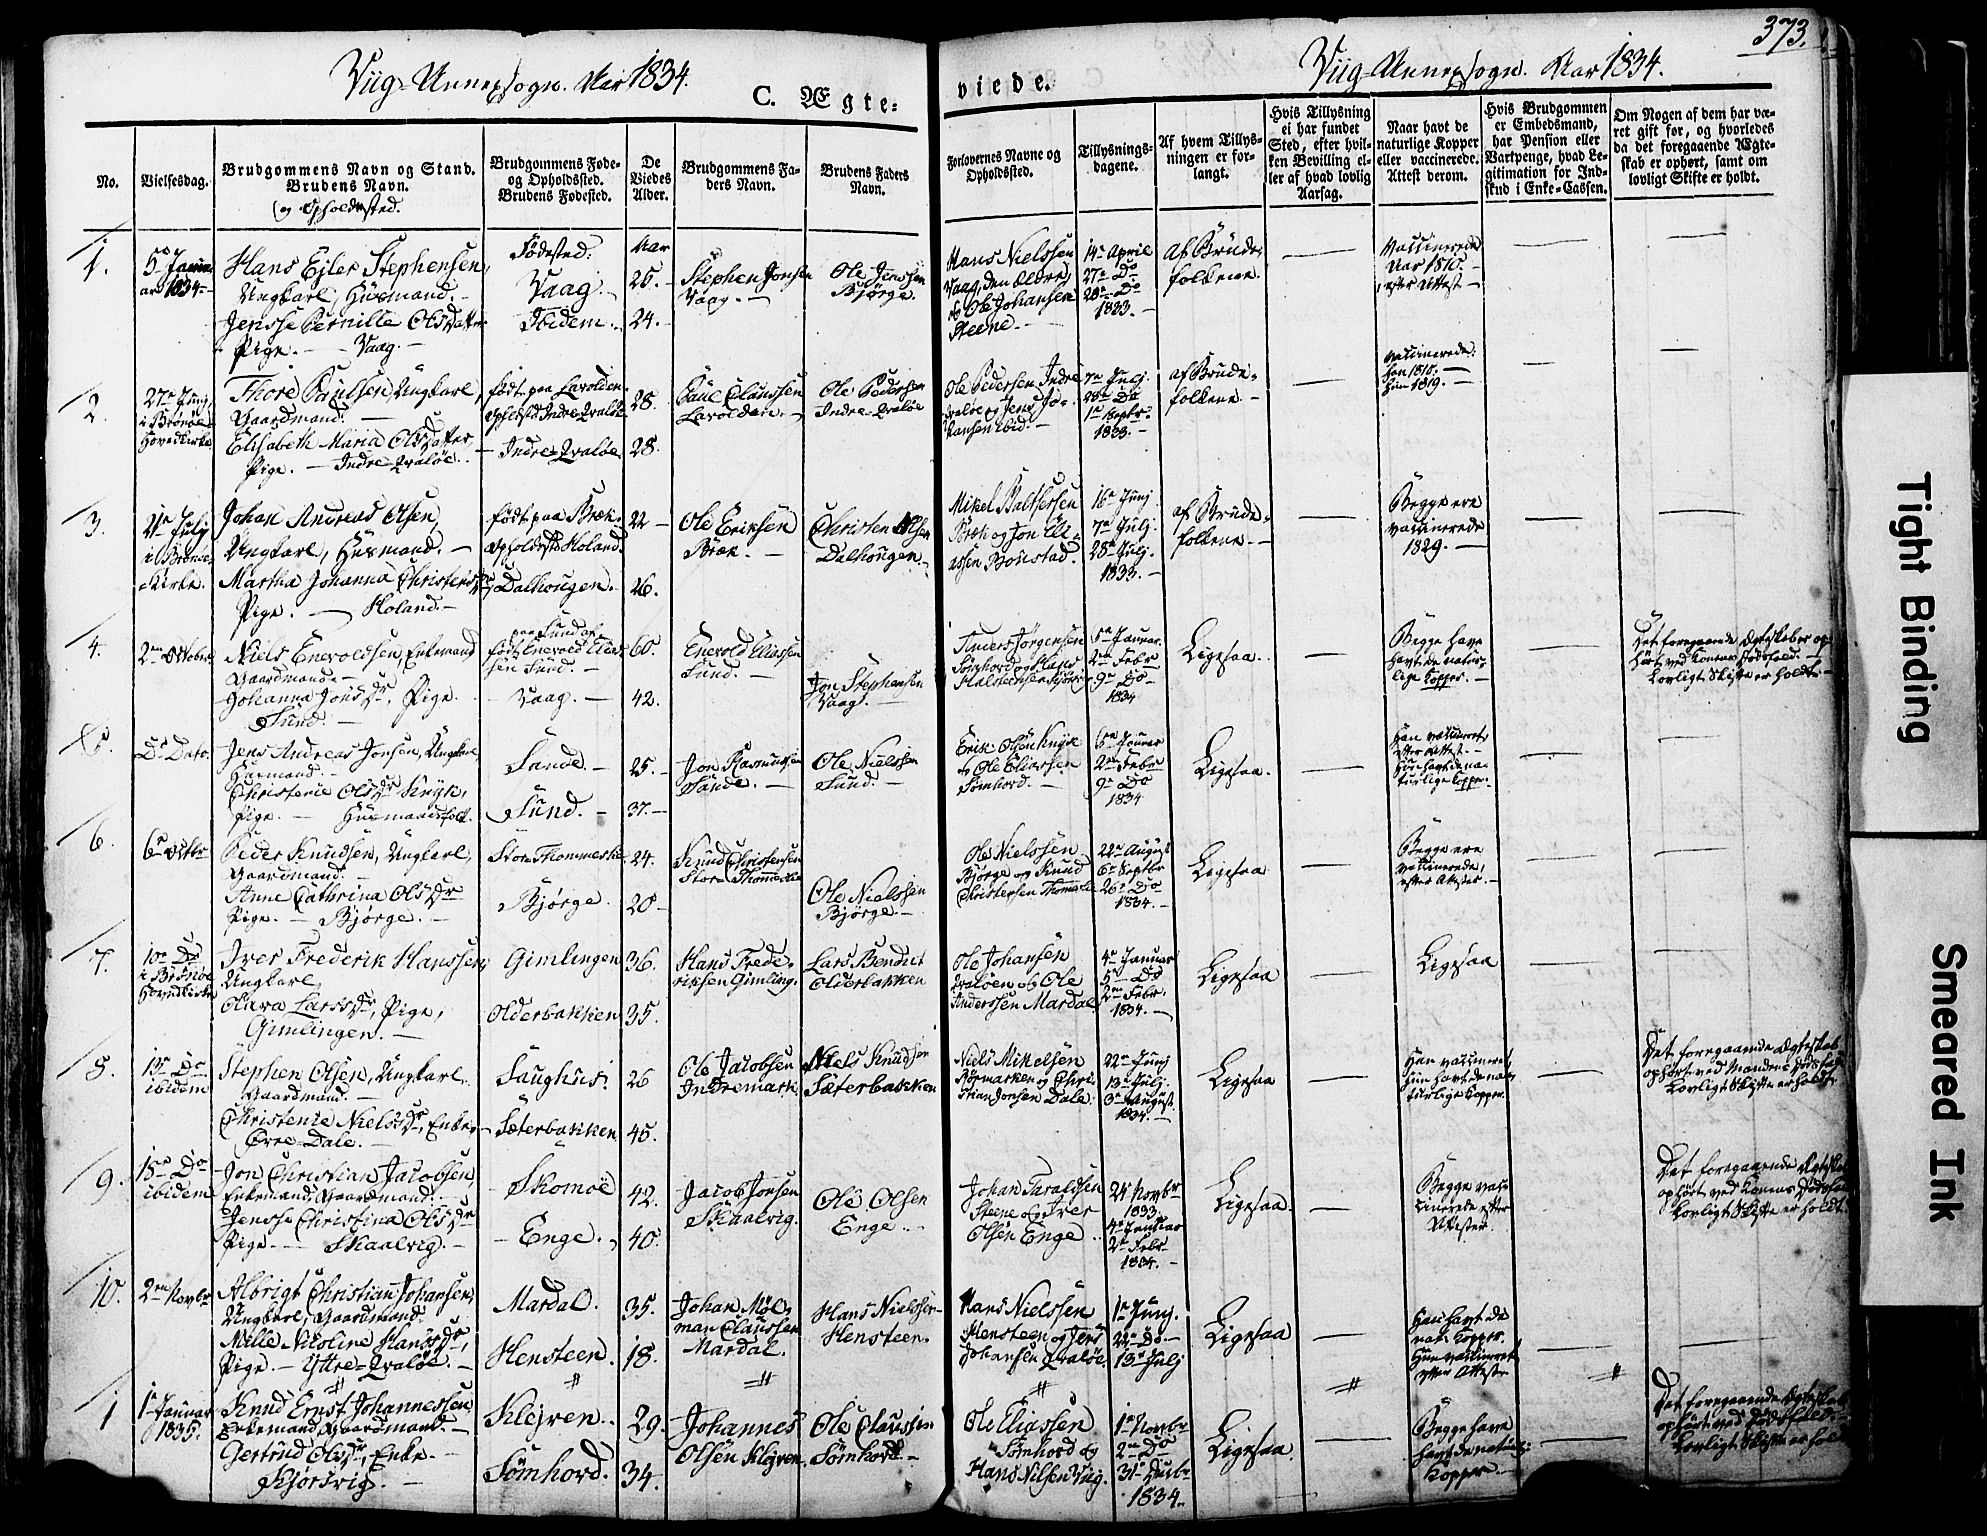 373.
Viig-Annexsogn. Aar 1834.
C. Ægte=
viede.
Viig-Annexsogn. Aar 1834.
No.
Vielsesdag.
Brudgommens Navn og Stand.
Brudens Navn.
og Opholdssted.
Brudgommens Føde-
og Opholdssted.
Brudens Fødested.
De
Viedes
Alder.
Brudgommens Fa-
ders Navn.
Brudens Faders
Navn.
Forlovernes Navne og
Opholdssted.
Tillysnings-
dagene.
Af hvem Tillys-
ningen er for-
langt.
Hvis Tillysning
ei har fundet
Sted, efter hvil-
ken Bevilling el-
ler af hvad lovlig
Aarsag.
Naar havt de
naturlige Kopper
eller vaccinerede.
Attest derom.
Hvis Brudgommen
er Embedsmand,
har Pension eller
Vartpenge, hvad Le-
gitimation for Ind-
skud i Enke-Cassen.
Om Nogen af dem har væ-
ret gift før, og hvorledes
da det foregaaende Ægte-
skab er ophørt, samt om
lovligt Skifte er holdt.
1.
5te Janu-
ar 1834.
Hans Ejler Stephensen,
Ungkarl, Huusmand.
Jensse Pernille Olsdatter
Pige. - Vaag.
Fødested:
Vaag.
Ibidem.
Aar
25.
24.
Stephen Jonsen
Vaag.
Ole Jenssen
Bjørge.
Hans Nielssen
Vaag, den ældre,
og Ole Johansen
Steene.
14de April
27de Do
28de Do
1833.
af Brude-
folkene.
vaccinerede
Aar 1810.
efter Attest.
2.
27de Julj
i Brønøe
Hovedkirke
Thore Paulssen, Ungkarl,
Gaardmand.
Elisabeth Maria Olsdatter,
Pige. - Indre-Qvaløe.
født paa Lavolden
opholdsted Indre Qvaløe
Indre-Qvaløe
28.
28.
Paul Claussen
Lavolden.
Ole Pedersen
Indre-Qvaløe
Ole Pedersen Indre
Qvaløe og Jens Jo-
hansen ibid.
7de Julj
28de Do
1ste Septbr.
1833.
af Brude-
folkene.
vaccinerede:
han 1810.
hun 1819.
3.
Julj
i Brønøe
Kirke.
Johan Andreas Olsen,
Ungkarl, Huusmand.
Martha Johanna Christensdr
Pige. - Holand.
født paa Bræk.
Opholdsted Holand.
Dalhougen.
22
26.
Ole Eriksen
Bræk.
Christen Olsen
Dalhougen.
Mikel Baltserssen
Bræk og Jon Eli-
assen Bønstad.
16de Junj
7de Julj
28de Julj.
1833.
af Brude-
folkene.
Begge ere
vaccinerede
1829.
4.
2den October
Niels Enevoldsen, Enkemand
Gaardmand.
Johanna Jonsdr, Pige.
Sund.
paa Sund af
født Enevold Elias-
sen Sund.
Vaag.
60.
42.
Enevold Eliassen
Sund.
Jon Stephensen
Vaag.
Anders Jørgensen
Sømhord og Hans
5te Januar.
2den Febr
9de Do
1834
Ligesaa.
Begge have
havt de natur-
lige Kopper.
Det foregaaende Ægteskaber op-
hørt ved Konens Dødsfald.
Lovligt Skifte er holdt.
5.
Do Dato.
Jens Andreas Jonsen, Ungkarl,
Huusmand.
Christenie Olsdr Knyk,
Pige. - Huusmandsfolk.
Sande.
Sund.
25.
37.
Jon Rasmussen
Sande.
Ole Nielssen
Sund.
Erik Olsen Knyk
og Ole Eliassen
Sømhord.
5te Januar
2den Febr
9de Do
1834
Ligesaa.
Han vaccineret
efter Attest.
Hun havt de na-
turlige Kopper.
6.
6te Octbr
Peder Knudsen, Ungkarl,
Gaardmand.
Anne Cathrina Olsdr
Pige. - Bjørge.
Store Thommeskie
Bjørge.
24.
20.
Knud Christensen
Store Thommeskie
Ole Nielssen
Bjørge.
Ole Nielssen
Bjørge og Knud
Christensen
22de August
6te Septbr
26de Do
1834.
Ligesaa
Begge ere
vaccinerede,
efter Attester.
7.
10de Do
i Brønøe
Hovedkirke
Iver Frederik Hanssen,
Ungkarl.
Clara Larsdr, Pige,
Gimlingen.
Gimlingen
Olderbakken
36.
35.
Hans Frede-
riksen Gimling.
Lars Bendixt
Olderbakken
Ole Johansen
Qvaløen og Ole
Anderssen Mardal
4de Januar
5te Do
2den Febr.
1834.
Ligesaa
Ligesaa
8.
13de Do
ibidem
Stephen Olsen, Ungkarl.
Gaardmand.
Christenie Nielsdr, Enke
Øvre Dale.
Saughus.
Sæterbakken
26
45.
Ole Jacobsen
Indremark.
Niels Knudsen
Sæterbakken
Niels Mikelsen
og Chri-
stian Jonsen Dale.
22de Junj
13de Julj.
3de August
1834.
Ligesaa
Han vaccineret
Hun havt de na-
turlige Kopper.
Det foregaaende Ægteskab
ophørt ved Mandens Dødsfald
Lovligt Skifte er holdt.
9.
15de Do
ibidem
Jon Christian Jacobsen,
Enkemand, Gaardmand.
Jensse Christina Olsdr
Pige. - Skaalvig.
Skomoe
Enge.
42.
40.
Jacob Jonsen
Skaalvig.
Ole Olsen
Enge.
Johan Taraldsen
Steene og Iver
Olsen Enge
24 Novbr
1833.
4de Januar
2den Febr
1834.
Ligesaa.
Begge vac-
cinerede efter
Attester.
Det foregaaende Ægteskab
ophørt ved Konens Dødsfald
Lovligt Skifte er holdt.
10.
2den Novbr
Albrigt Christian Johansen,
Ungkarl, Gaardmand.
Mille Nicoline Hansdr,
Pige. - Yttre-Qvaløe.
Mardal.
Hensteen.
35.
18.
Johan Møl-
man Claussen
Mardal.
Hans Nielssen
Hensteen.
Hans Nielssen
Hensteen og Jens
Johansen Qvaløe
1ste Junj.
22de Do.
13de Julj
Ligesaa
Han havt de
nat. Kopper.
Hun vaccineret
efter Atteste
1
1ste Januar
1835.
Knud Ernst Johannessen
Enkemand, Gaardmand.
Gertrud Olsdr, Enke.
Fjortvig.
Klejven.
Sømhord.
29.
34.
Johannes
Olsen Klejven.
Ole Claussen
Sømhord.
Ole Eliassen
Sømhord og
Hans Nilsen Viig.
1ste Novbr
2den Do
31te Decbr
1834.
Ligesaa
Begge have
havt de naturlige
Kopper
Det foregaaende Ægteskab
ophørt ved Dødsfald.
Lovligt Skifte er holdt
Tight Binding
Smeared Ink